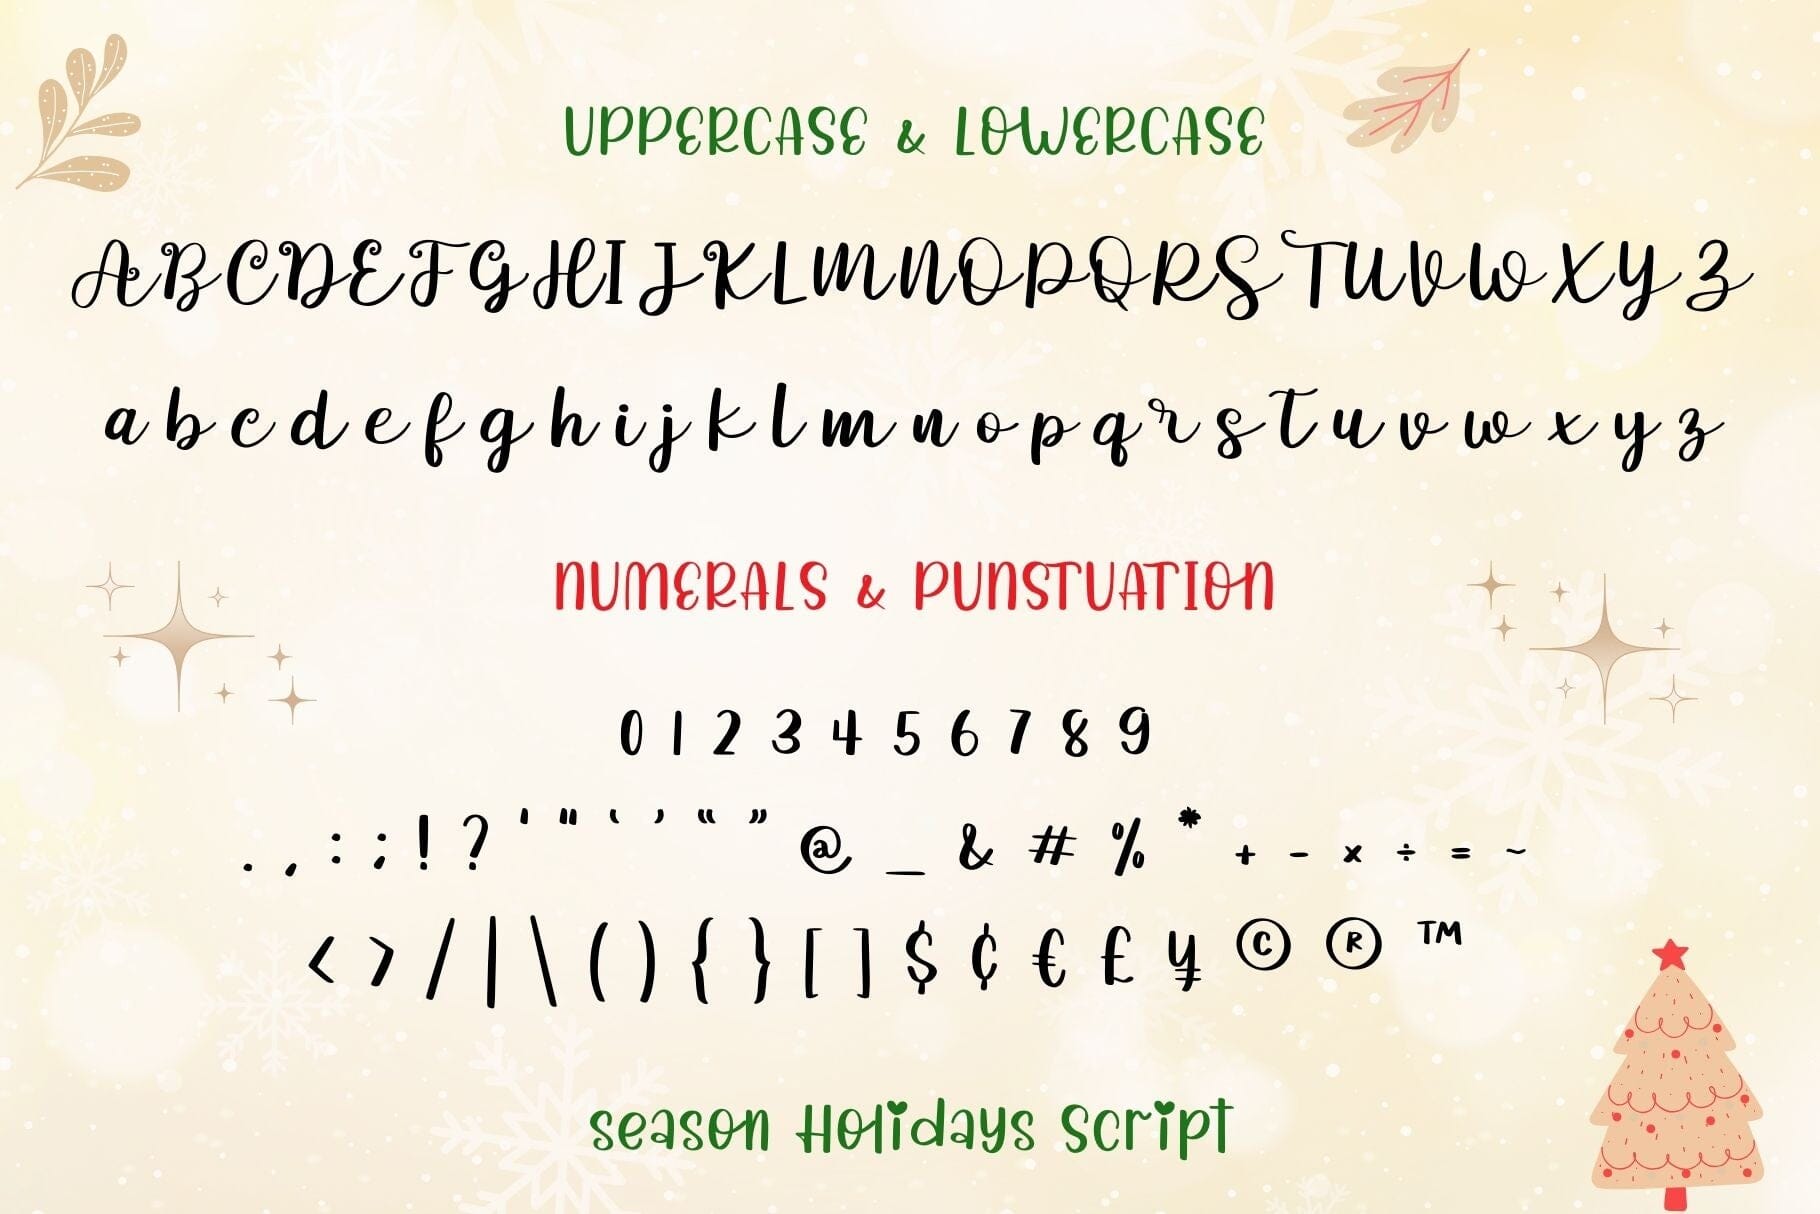 UPPERCASE & LOWERCASE
A B C D E F G H I J K L M N O P Q R S T U V W X Y Z
a b c d e f g h i j k l m n o p q r s t u v w x y z
NUMERALS & PUNSTUATION
0 1 2 3 4 5 6 7 8 9
. , : ; ! ? ' " ‘ ’ “ ” @ _ & # % * + - × ÷ = ~
< > / | \ ( ) { } [ ] $ ¢ € £ ¥ © ® ™
season Holidays Script